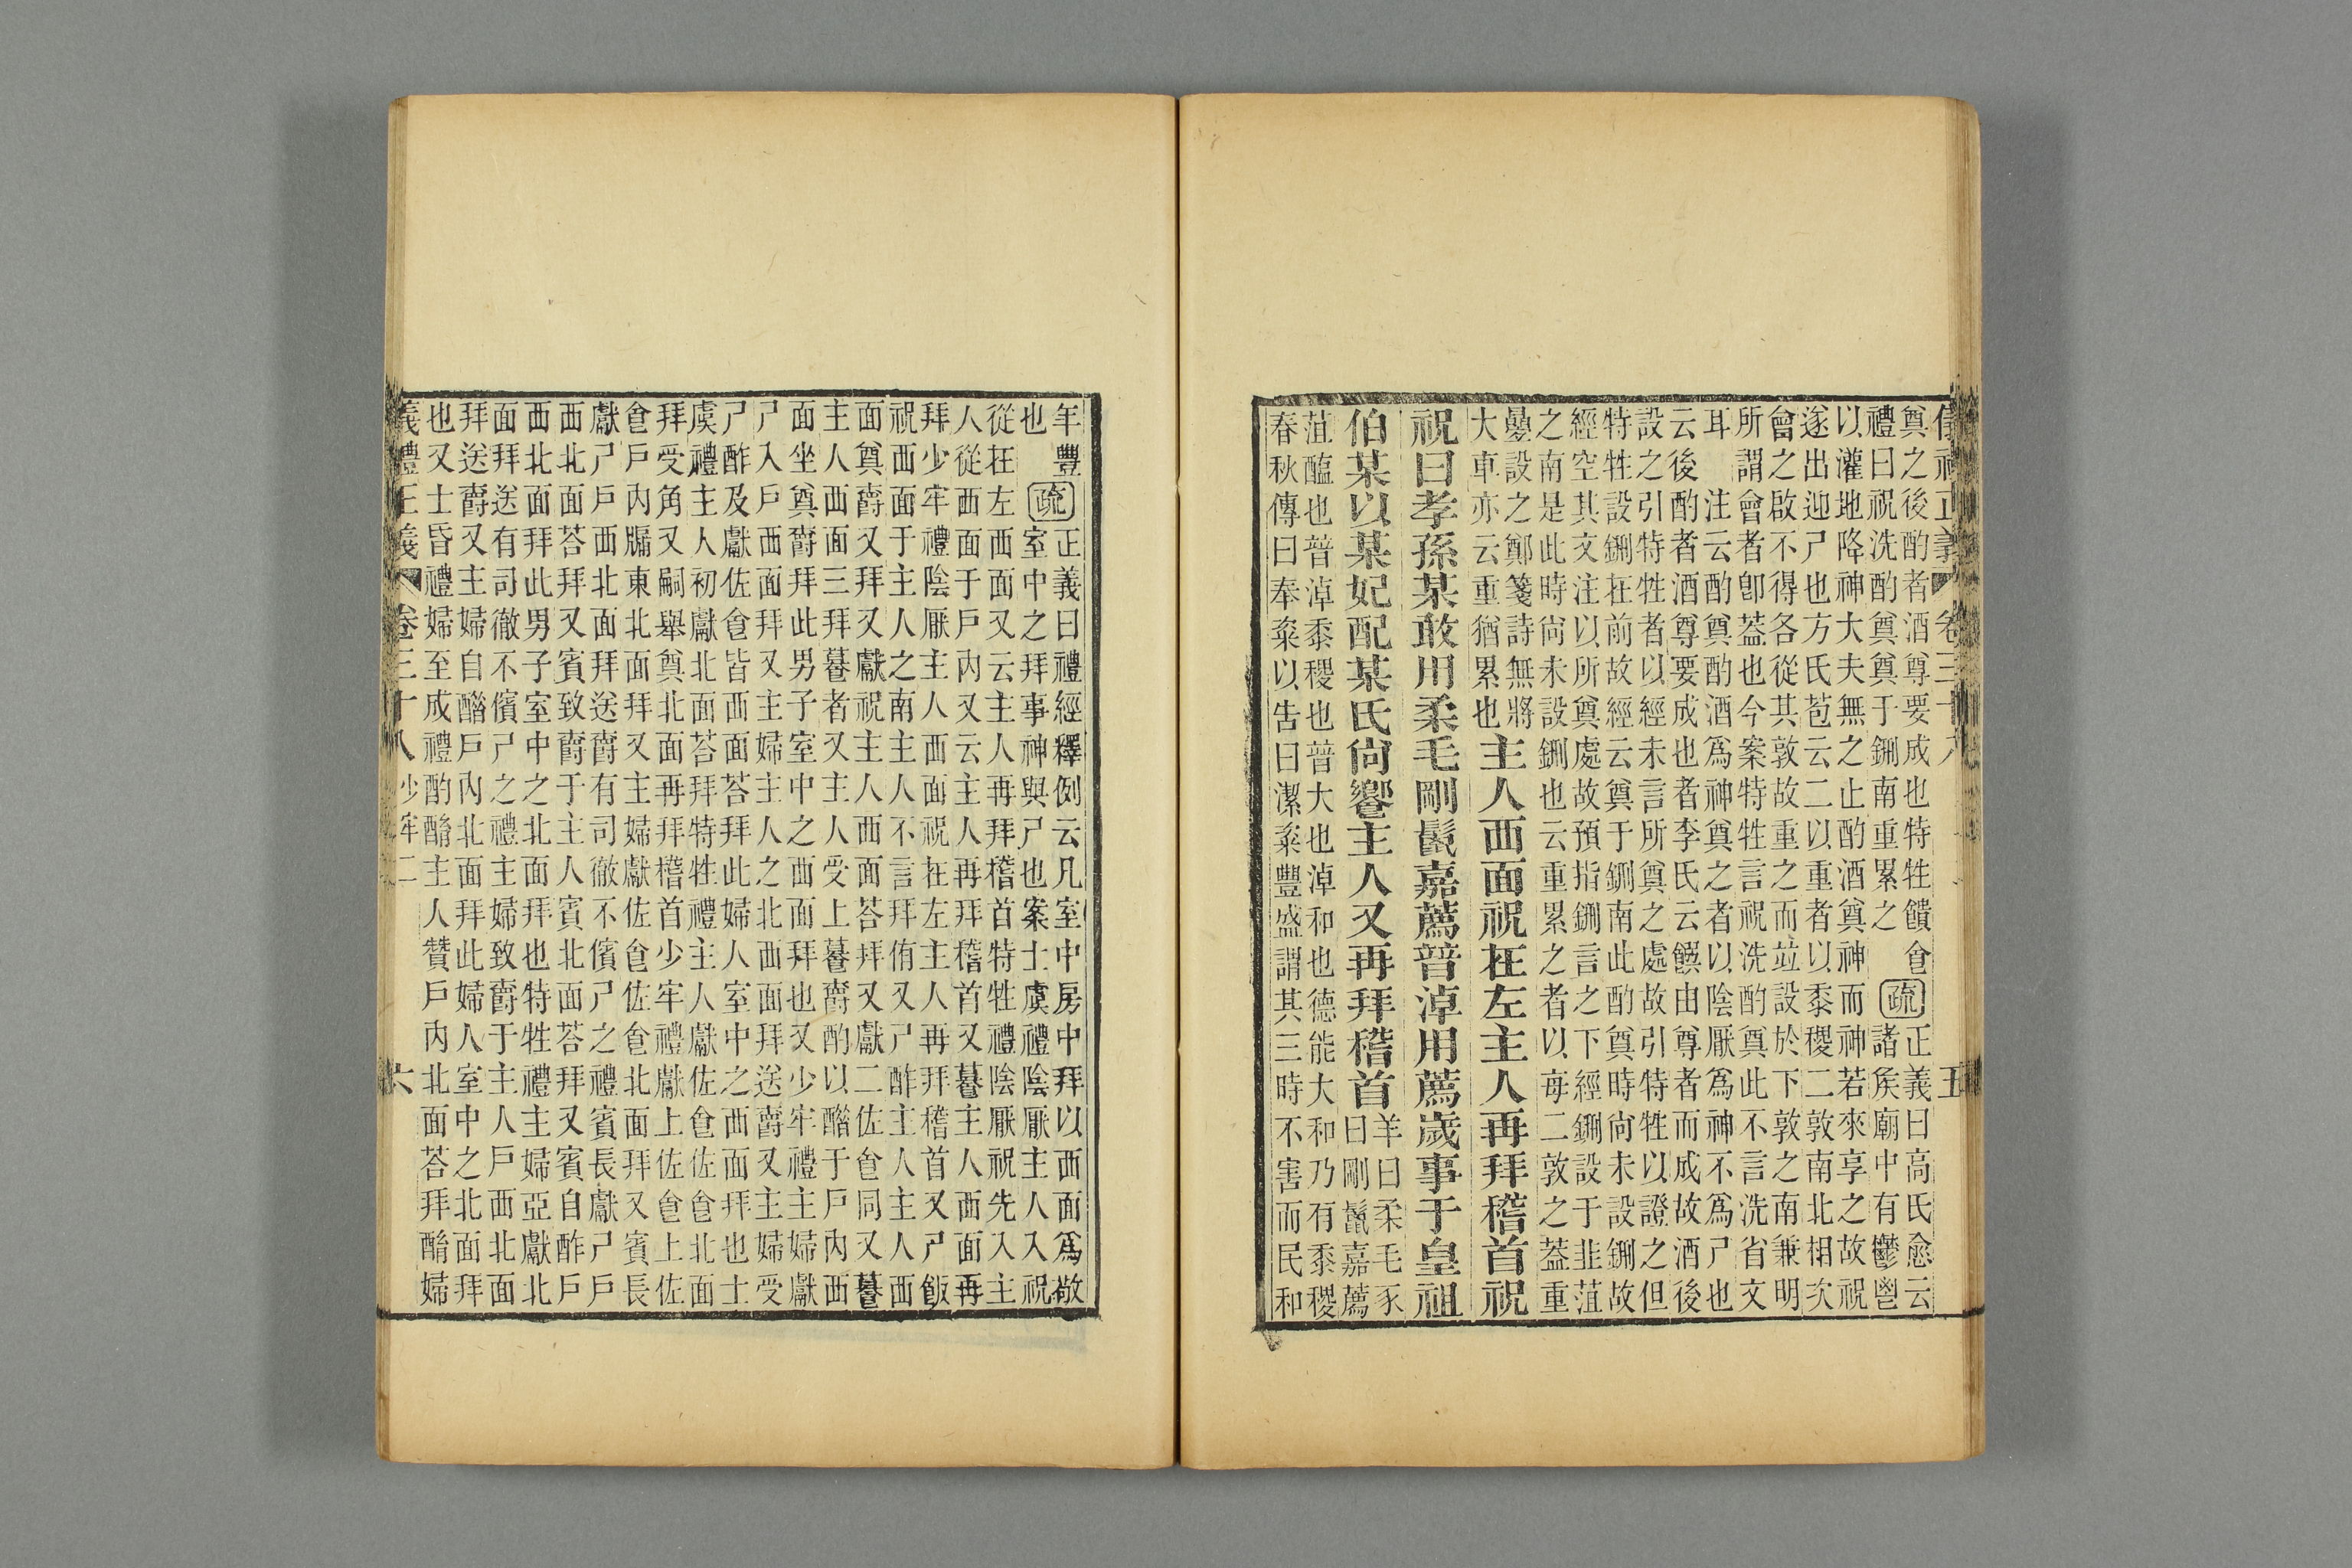 儀禮正義 卷三十八 五
奠之後酌者酒尊要成也特牲饋食
禮曰祝洗酌奠奠于鉶南重累之
疏
正義曰高氏愈云
諸矦廟中有鬱鬯
以灌地降神大夫無之止酌酒奠神而神若來享之故祝
遂出迎尸也方氏苞云二以重者以黍稷二敦南北相次
會之啟不得各從其敦故重之而竝設於下敦之南兼明
所謂會者卽葢也今案特牲言祝洗酌奠此不言洗省文
耳　注云酌奠酌酒爲神奠之者以陰厭爲神不爲尸也
云後酌者酒尊要成也者李氏云饌由尊者而成故酒後
設之引特牲者以經未言所奠之處故引特牲以證之但
特牲設鉶在前故經云奠于鉶南此酌奠時尙未設鉶故
經空其文注以所奠處故預指鉶言之下經鉶設于韭菹
之南是此時尙未設鉶也云重累之者以每二敦之葢重
疊設之鄭箋詩無將
大車亦云重猶累也
主人西面祝在左主人再拜稽首祝
祝曰孝孫某敢用柔毛剛鬣嘉薦普淖用薦歲事于皇祖
伯某以某妃配某氏尙饗主人又再拜稽首
羊曰柔毛豕
曰剛鬣嘉薦
菹醢也普淖黍稷也普大也淖和也德能大和乃有黍稷
春秋傳曰奉粢以告曰潔粢豐盛謂其三時不害而民和
年豐
也
疏
正義曰禮經釋例云凡室中房中拜以西面爲敬
室中之拜事神與尸也案士虞禮陰厭主人入祝
從在左西面又云主人再拜稽首特牲禮陰厭祝先入主
人從西面于戶內又云主人再拜稽首又籑主人西面再
拜少牢禮陰厭主人西面祝在左主人再拜稽首又尸飯
祝西面于主人之南主人不言拜侑又尸酢主人主人西
面奠爵又拜又獻祝主人西面荅拜又獻二佐食同又籑
主人西面三拜籑者又主人受上籑爵酌以醋于戶內西
面坐奠爵拜此男子室中之西面拜也又少牢禮主婦獻
尸入戶西面拜又主婦主人之北西面拜送爵又主婦受
尸酢及獻佐食皆西面荅拜此婦人室中之西面拜也士
虞禮主人初獻北面荅拜特牲禮主人獻佐食佐食北面
拜受角又嗣舉奠北面再拜稽首少牢禮獻上佐食上佐
食戶內牖東北面拜又主婦獻佐食佐食北面拜又賓長
獻尸戶西北面拜送爵有司徹不儐尸之禮賓長獻尸戶
西北面荅拜又賓致爵于主人賓北面荅拜又賓自酢戶
西北面拜此男子室中之北面拜也特牲禮主婦亞獻北
面拜送有司徹不儐尸之禮主婦致爵于主人戶西北面
拜送爵又主婦自醋戶內北面拜此婦人室中之北面拜
也又士昏禮婦至成禮酌酳主人贊戶內北面荅拜酳婦
義禮正義 卷三十八 少牢二 六